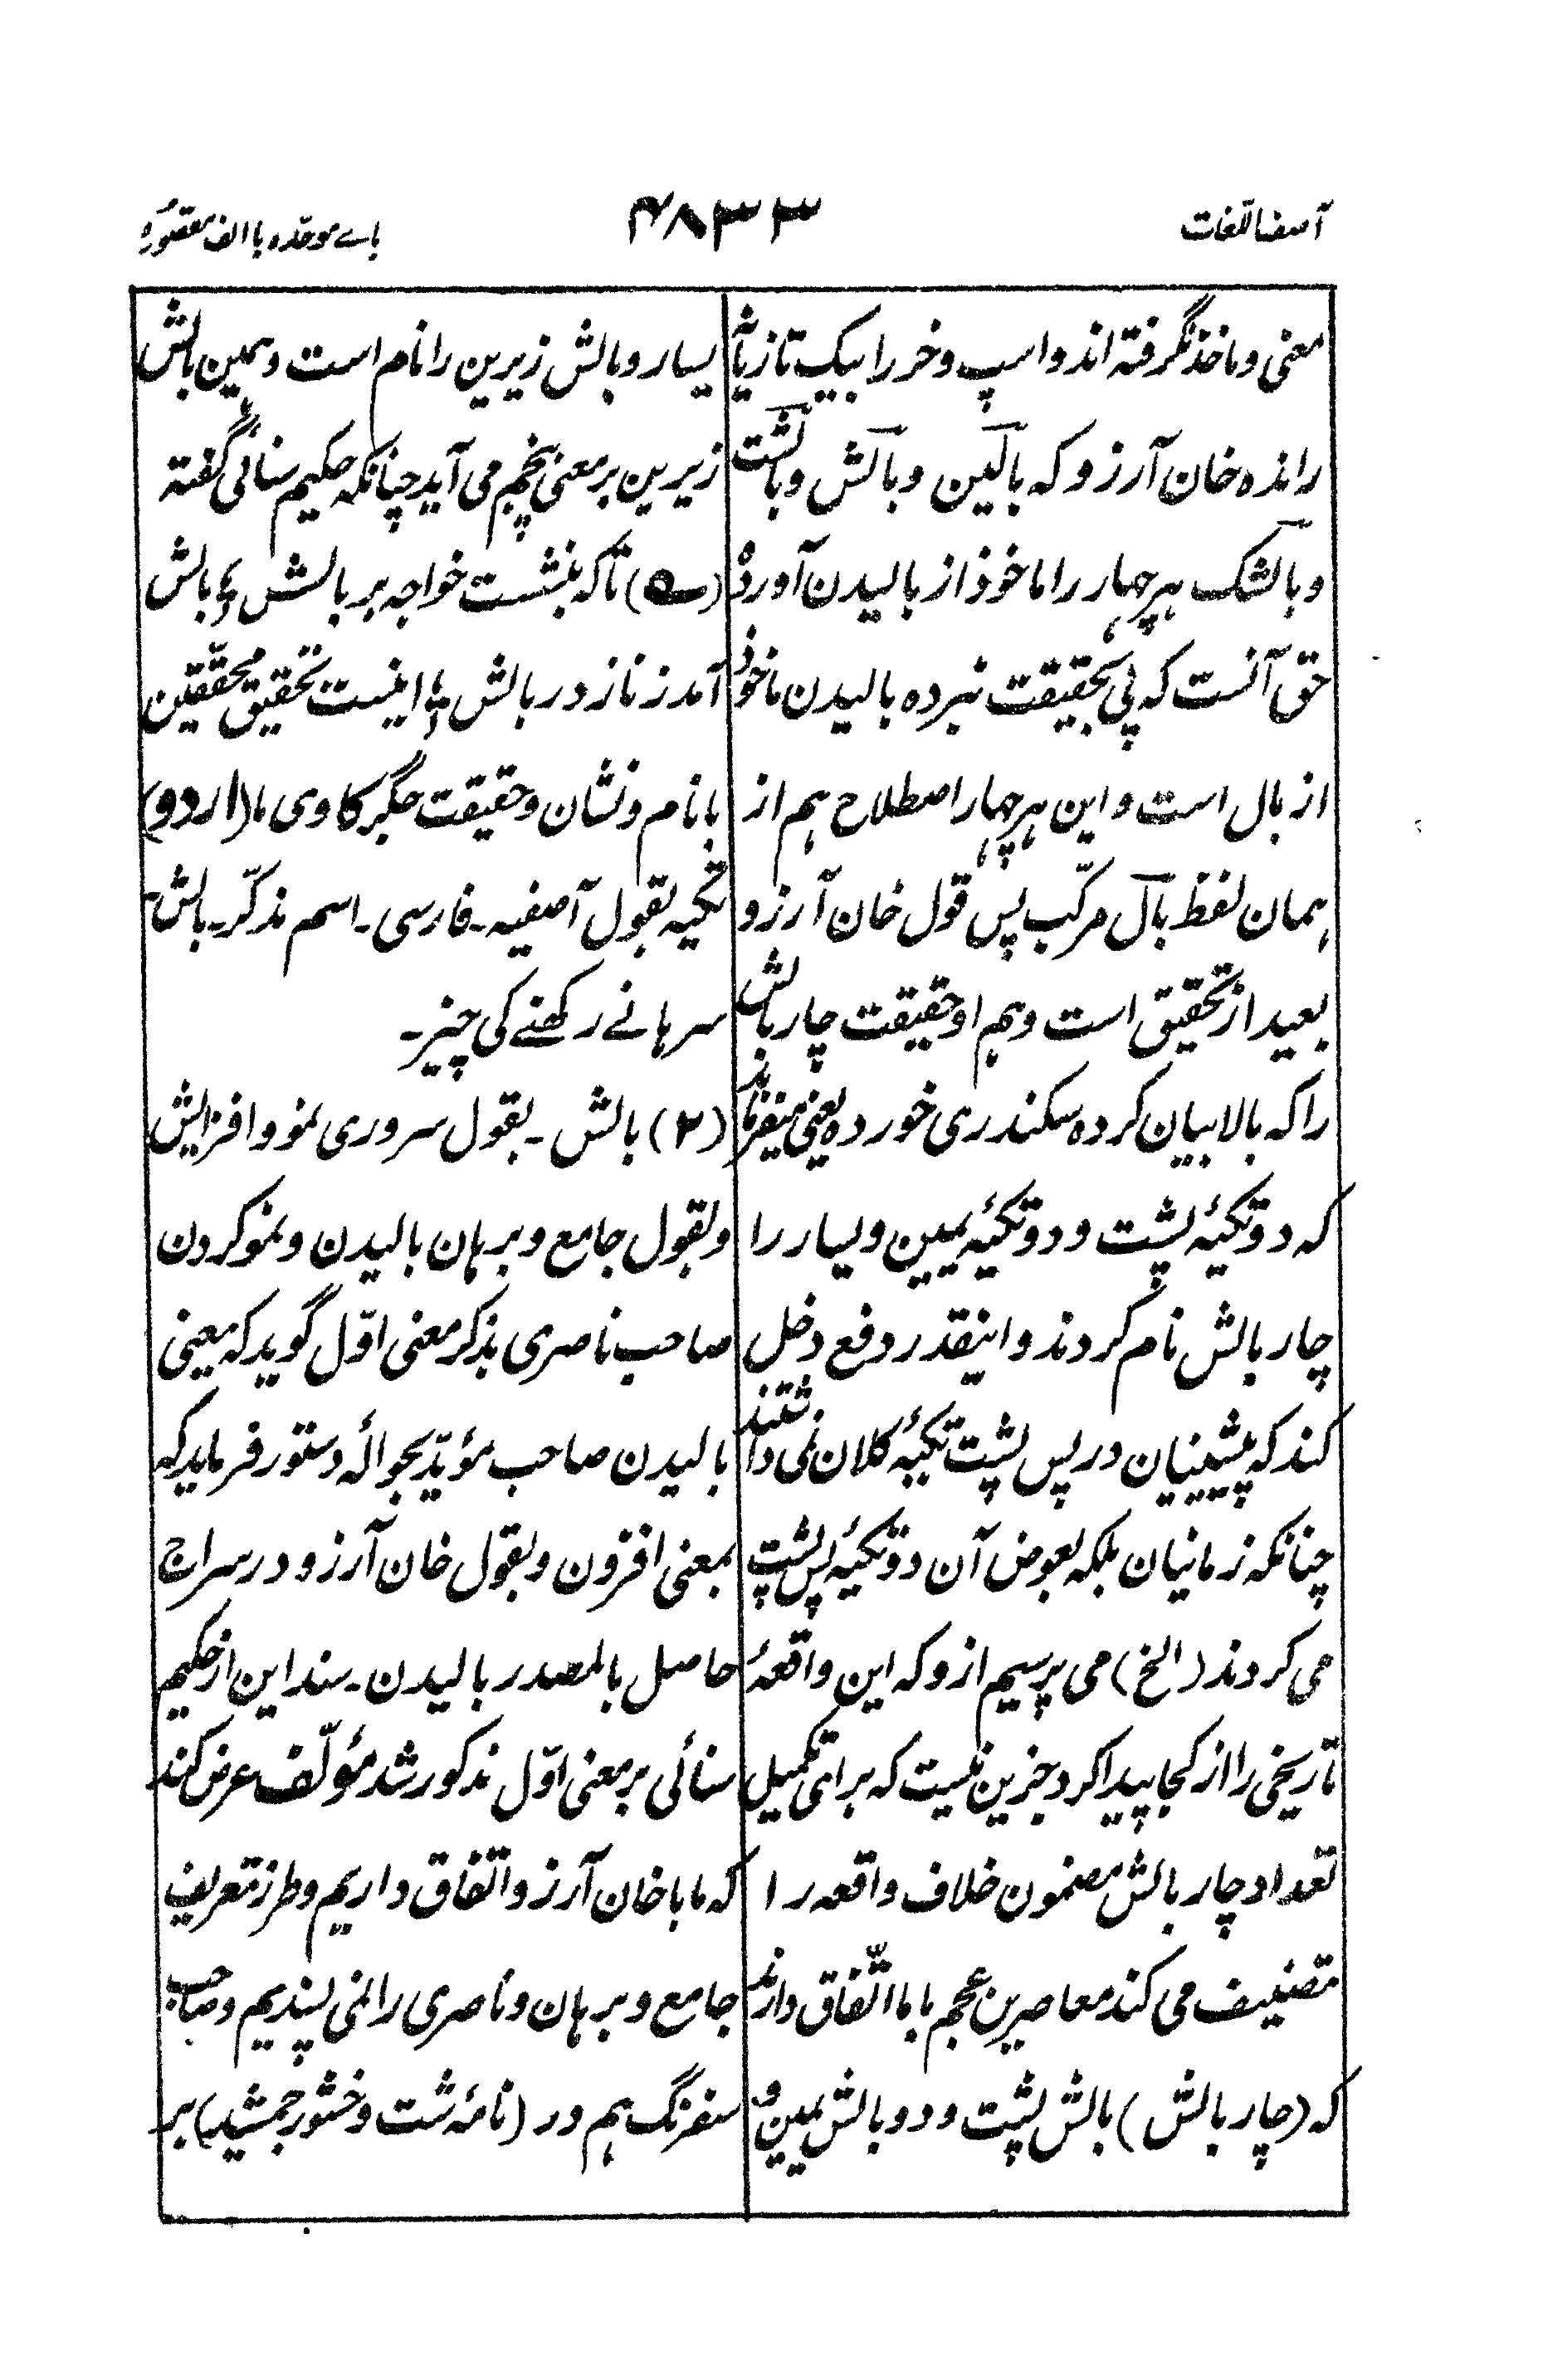 آصف اللغات
۴۸۳۳
باے موحّدہ با الف مقصورہ
معنی و ماخذ نگرفتہ اند و اسپ و خر را بیک تازیانہ
راندہ خان آرزو کہ بالین و بالش و بالشت
و بالشک ہر چہار را ماخوذ از بالیدن آوردہ
حق آنست کہ پی بحقیقت نبردہ بالیدن ماخوذ
از بال است و این ہر چہار اصطلاح ہم از
ہمان لفظ بال مرکّب پس قول خان آرزو
بعید از تحقیق است و ہم او حقیقت چار بالش
را کہ بالا بیان کردہ سکندری خوردہ یعنی میفرماید
کہ دو تکیۂ پشت و دو تکیۂ یمین و یسار را
چار بالش نام کردند و اینقدر دفع دخل
کند کہ پیشینیان در پس پشت تکیۂ کلان نمی داشتند
چنانکہ زمانیان بلکہ بعوض آن دو تکیۂ پس پشت
می کردند (الخ) می پرسیم ازو کہ این واقعۂ
تاریخی را از کجا پیدا کرد جزین نیست کہ برای تکمیل
تعداد چار بالش مضمون خلاف واقعہ را
تصنیف می کند معاصرین عجم با ما اتّفاق دارند
کہ (چار بالش) بالش پشت و دو بالش یمین و
یسار و بالش زیرین را نام است و ہمین بالش
زیرین بر معنی پنجم می آید چنانکہ حکیم سنائی گفتہ
(ے) تا کہ بنشست خواجہ بر بالش ؛ بالش
آمد ز ناز در بالش ؛ اینست تحقیق محقّقین
با نام و نشان و حقیقت جگر کاوی ما (اردو)
تکیہ بقول آصفیہ ۔ فارسی ۔ اسم مذکّر ۔ بالش
سرہانے رکھنے کی چیز ۔
(۲) بالش ۔ بقول سروری نمو و افزایش
و بقول جامع و برہان بالیدن و نمو کردن
صاحب ناصری بذکر معنی اوّل گوید کہ بمعنی
بالیدن صاحب مؤیّد بحوالۂ دستور فرماید کہ
بمعنی افزون و بقول خان آرزو در سراج
حاصل بالمصدر بالیدن ۔ سند این از حکیم
سنائی بر معنی اوّل مذکور شد مؤلّف عرض کند
کہ ما با خان آرزو اتّفاق داریم و طرز تعریف
جامع و برہان و ناصری را نمی پسندیم و صاحب
سفرنگ ہم در (نامۂ شت و خشور جمشید) بر